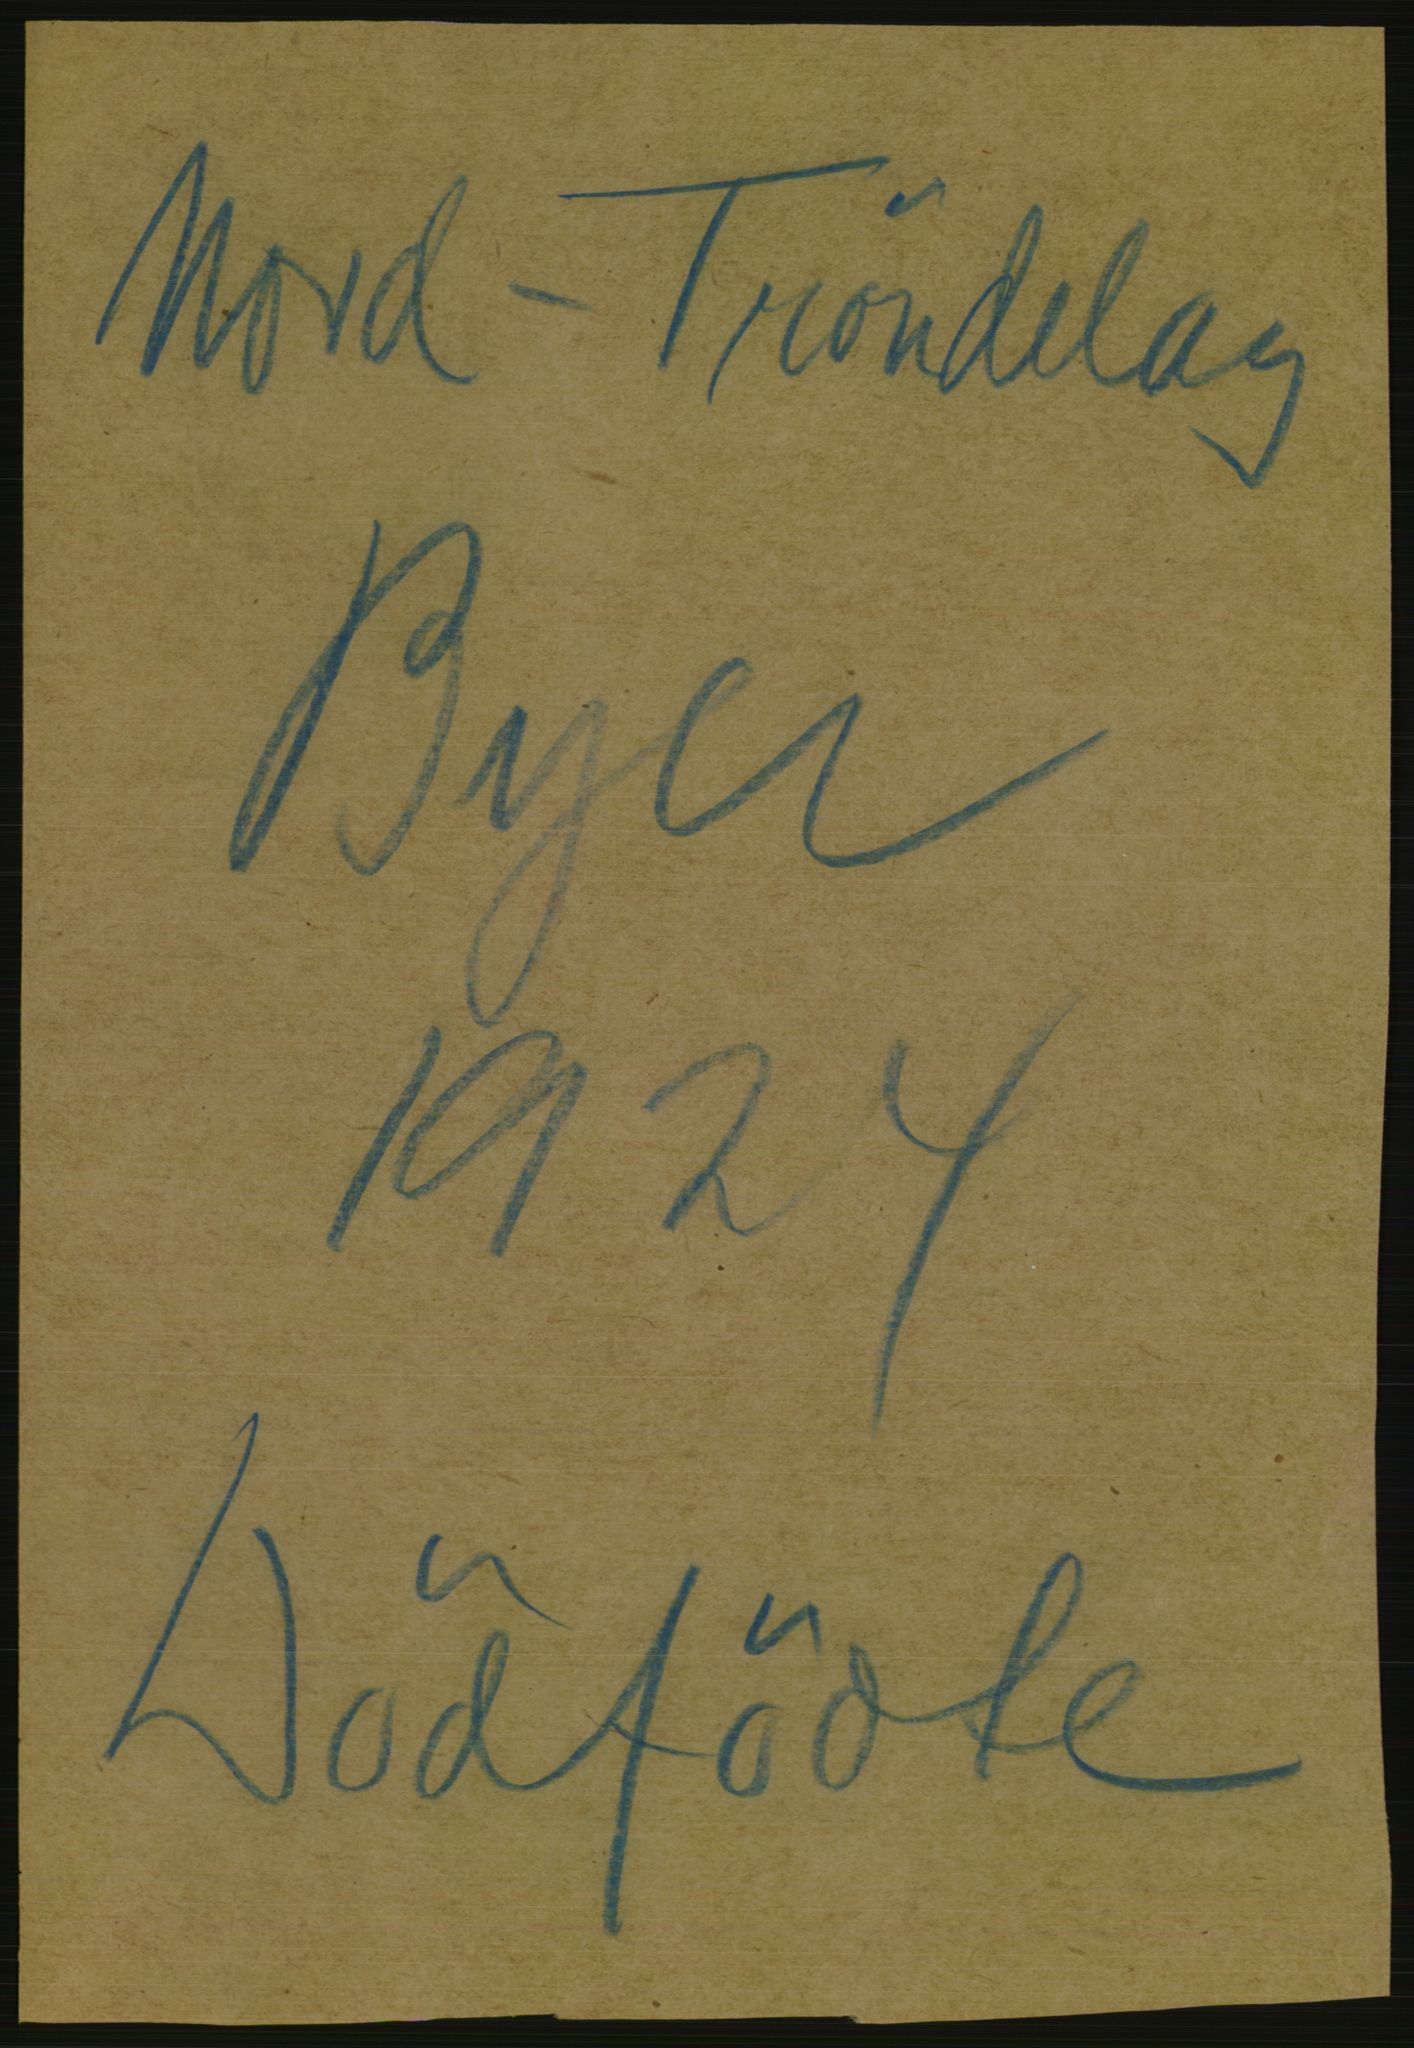 Nord - Tröndelag
Byer
1924
Dödfödte